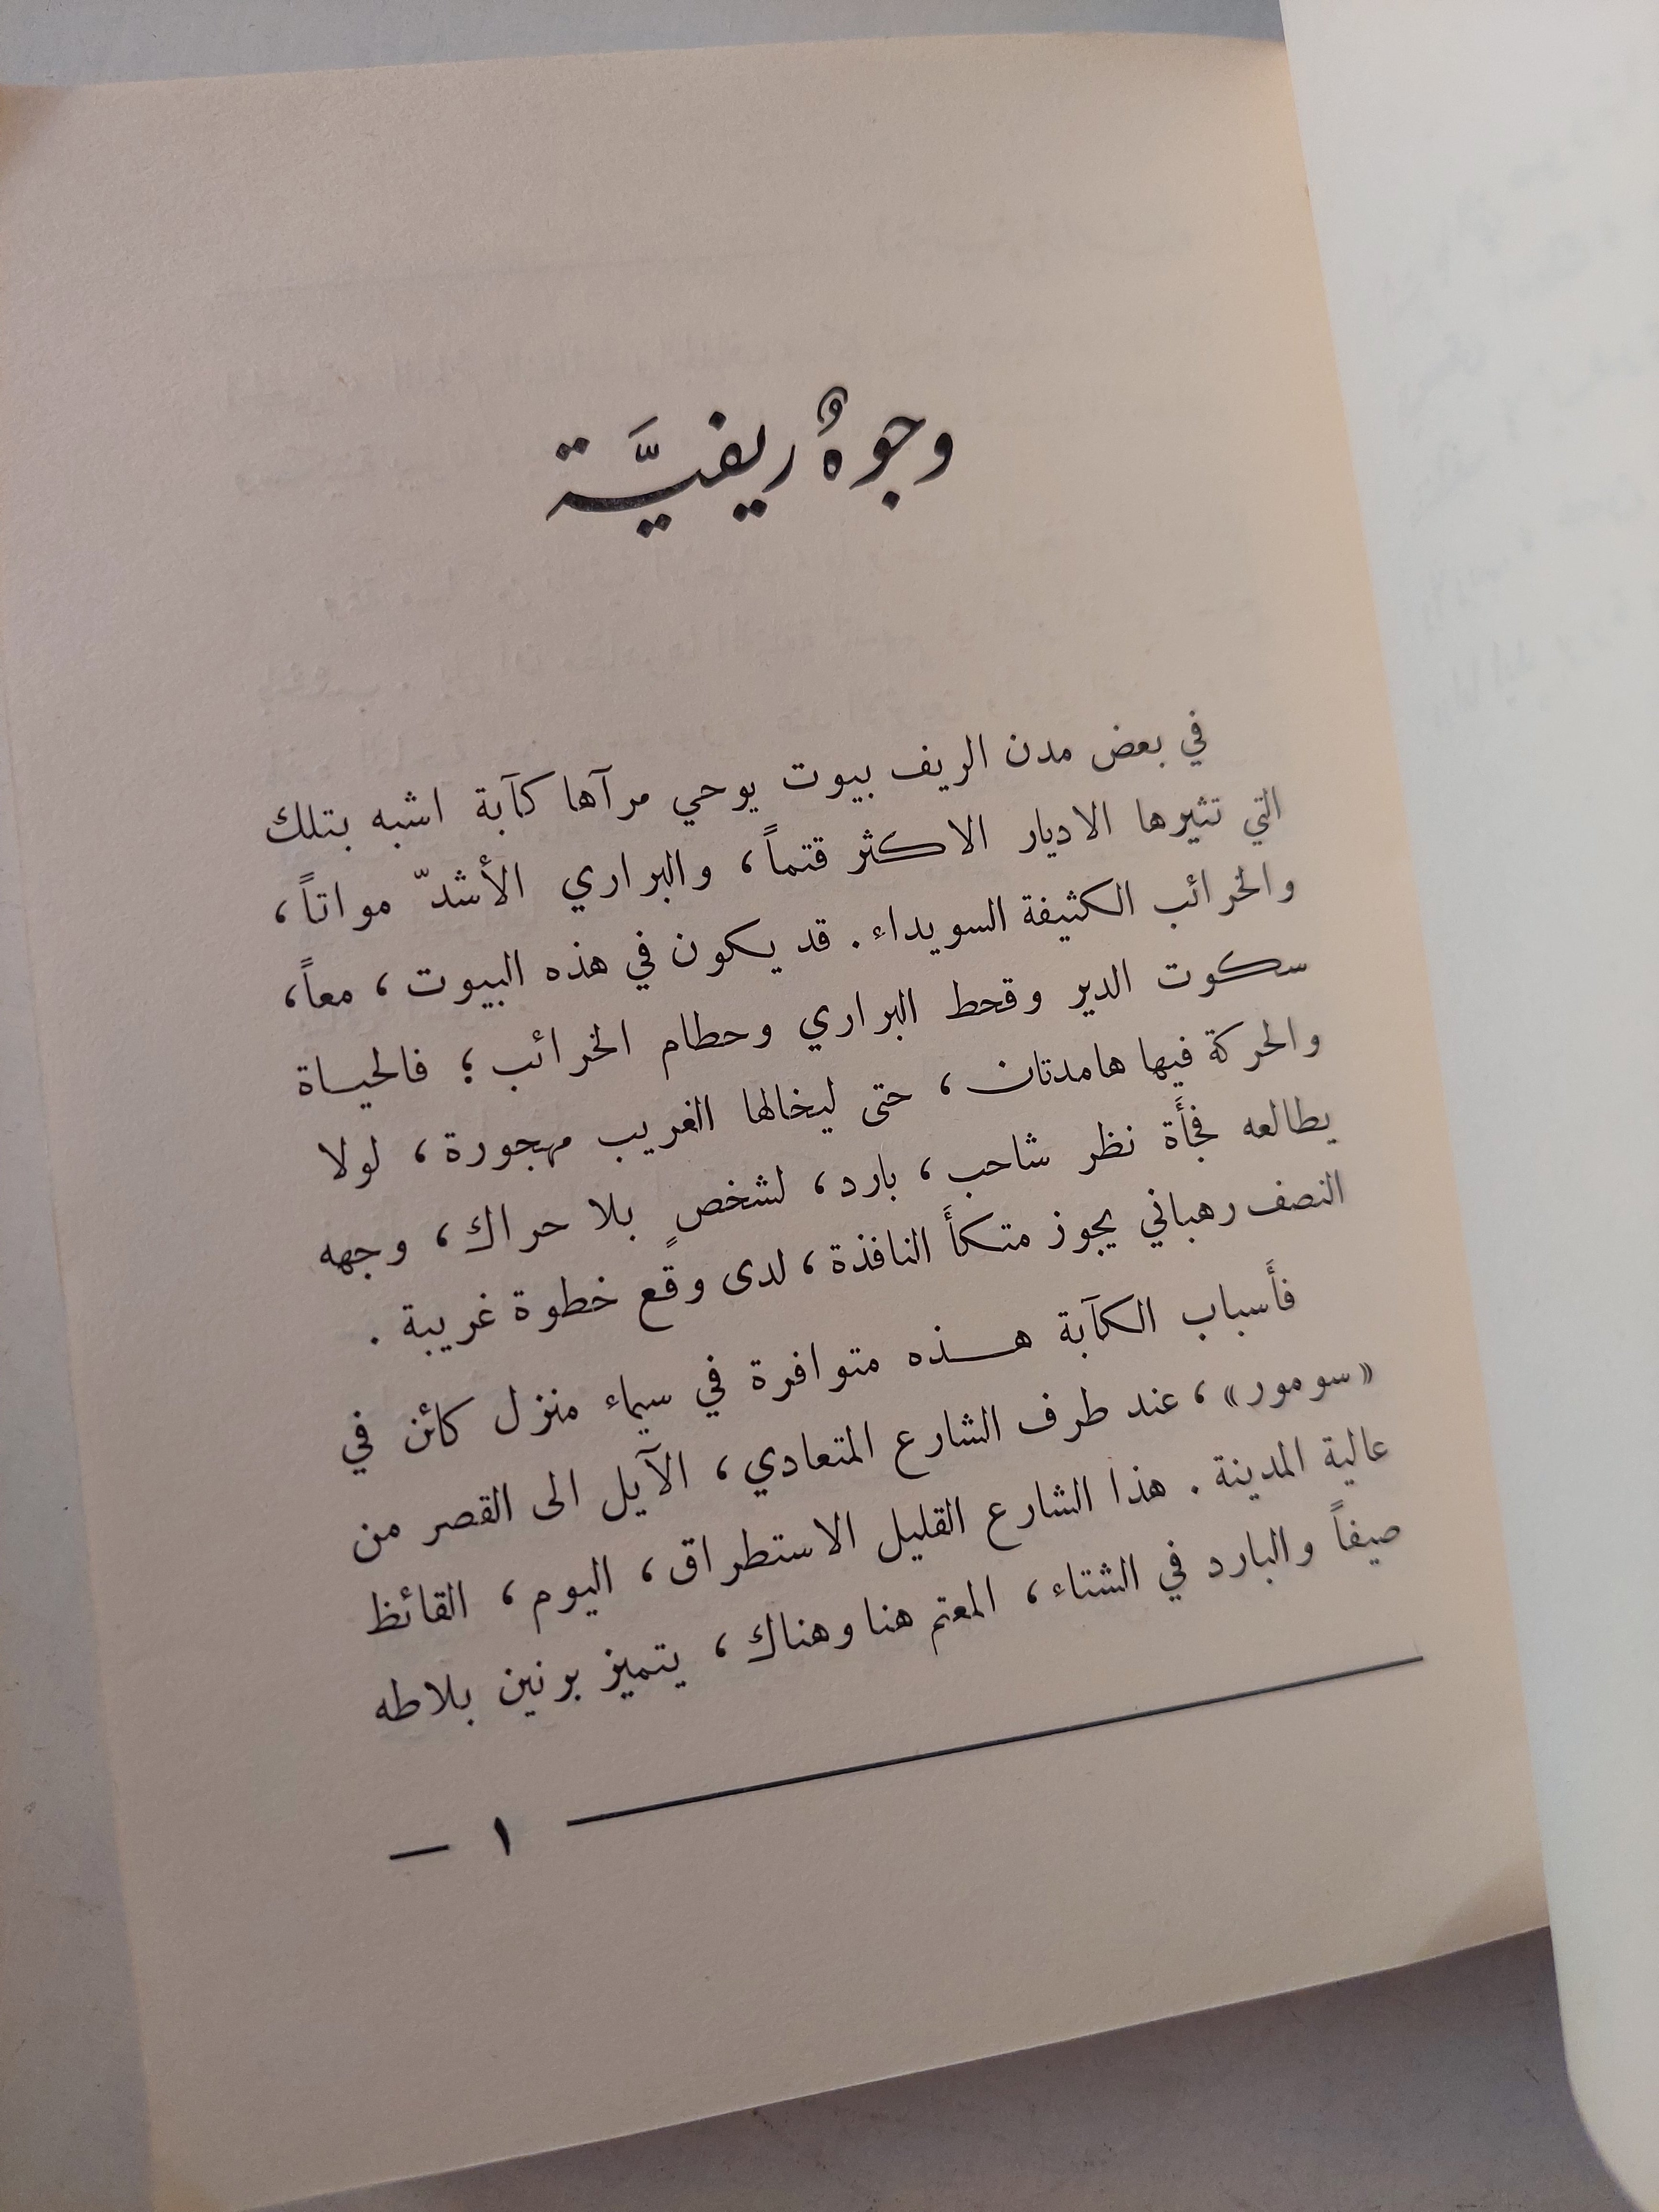 وجوهٌ ريفيَّة
في بعض مدن الريف بيوت يوحي مرآها كآبة اشبه بتلك
التي تثيرها الاديار الاكثر قتماً، والبراري الأشدّ مواتاً،
والخرائب الكثيفة السويداء. قد يكون في هذه البيوت، معاً،
سكوت الدير وقحط البراري وحطام الخرائب؛ فالحياة
والحركة فيها هامدتان، حتى ليخالها الغريب مهجورة، لولا
يطالعه فجأَة نظر شاحب، بارد، لشخصٍ بلا حراك، وجهه
النصف رهباني يجوز متكأَ النافذة، لدى وقع خطوة غريبة.
فأَسباب الكآبة هذه متوافرة في سيماء منزل كائن في
«سومور»، عند طرف الشارع المتعادي، الآيل الى القصر من
عالية المدينة. هذا الشارع القليل الاستطراق، اليوم، القائظ
صيفاً والبارد في الشتاء، المعتم هنا وهناك، يتميز برنين بلاطه
١ —